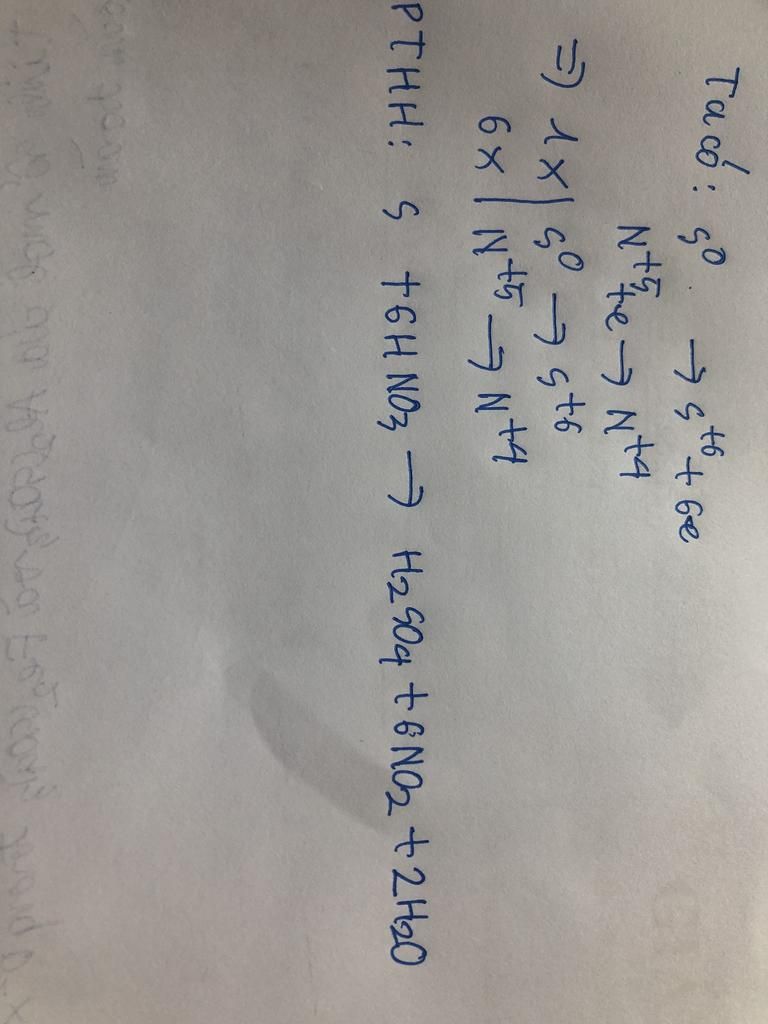 Ta có: S⁰ → S⁺⁶ + 6e
N⁺⁵ + e → N⁺⁴
=) 1x | S⁰ → S⁺⁶
6x | N⁺⁵ → N⁺⁴
PTHH: S + 6HNO₃ → H₂SO₄ + 6NO₂ + 2H₂O